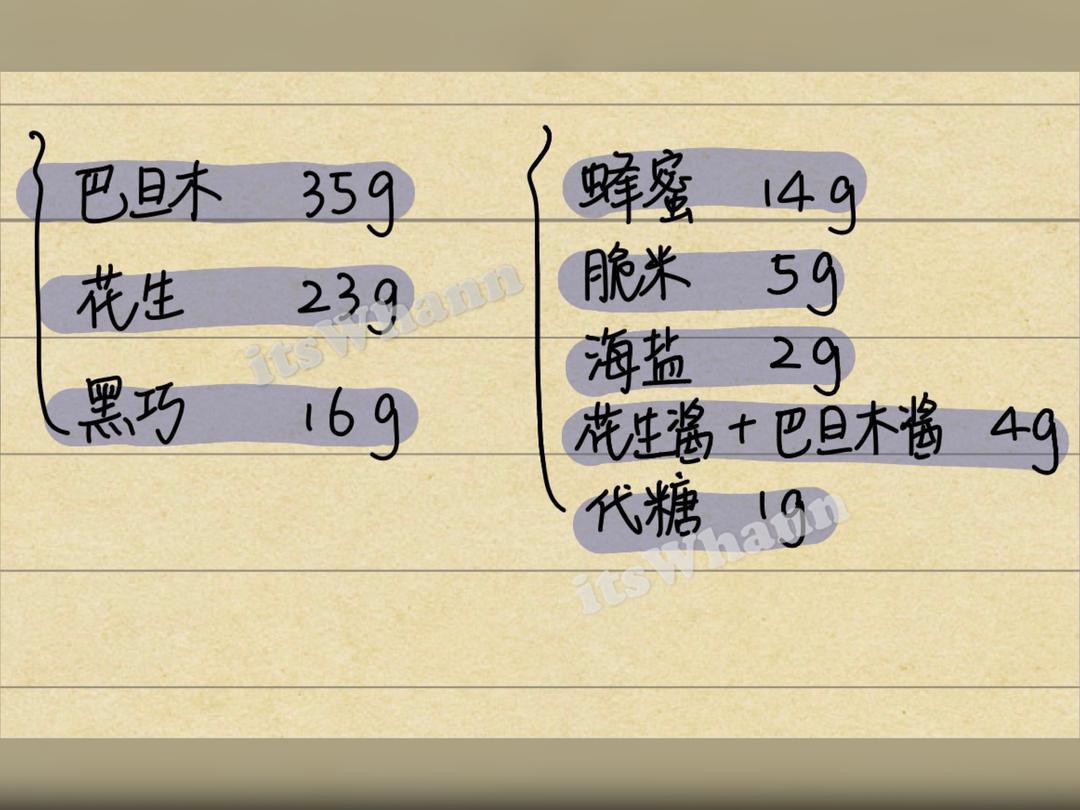 巴旦木 35g
花生 23g
黑巧 16g
蜂蜜 14g
脆米 5g
海盐 2g
花生酱+巴旦木酱 4g
代糖 1g
itsWhann
itsWhann